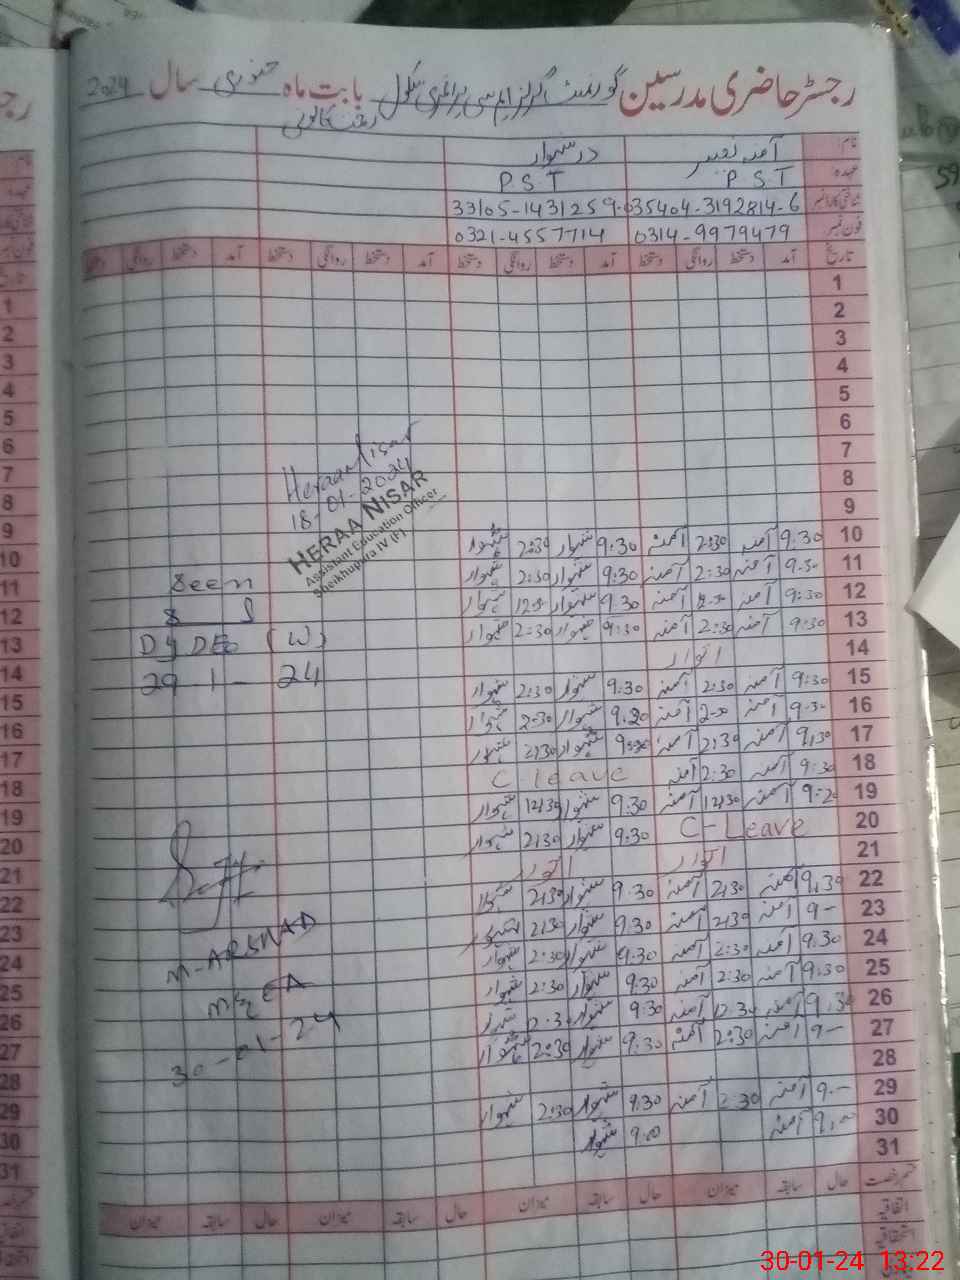 رجسٹر حاضری مدرسین گورنمنٹ گرلز ایم سی پرائمری سکول بابت ماہ جنوری سال 2024
نام آمنہ نصیر در شہوار
عہدہ P S T P S T
شناختی کارڈ نمبر 35404-3192814-6 33105-1431259-0
فون نمبر 0314-9979479 0321-4557714
تاریخ آمد دستخط روانگی دستخط آمد دستخط روانگی دستخط آمد دستخط روانگی دستخط آمد دستخط روانگی دستخط
1
2
3
4
5
6
7
8
9
10 9:30 آمنہ 2:30 آمنہ 9:30 شہوار 2:30 شہوار
11 9:30 آمنہ 2:30 آمنہ 9:30 شہوار 2:30 شہوار
12 9:30 آمنہ آمنہ 9:30 شہوار شہوار
13 9:30 آمنہ 2:30 آمنہ 9:30 شہوار 2:30 شہوار
14 اتوار
15 9:30 آمنہ 2:30 آمنہ 9:30 شہوار 2:30 شہوار
16 9:30 آمنہ آمنہ شہوار 2:30 شہوار
17 9:30 آمنہ 2:30 آمنہ شہوار 2:30 شہوار
18 9:30 آمنہ 2:30 آمنہ C leave
19 آمنہ 12:30 آمنہ 9:30 شہوار 12:30 شہوار
20 C-Leave 9:30 شہوار 2:30 شہوار
21 اتوار اتوار
22 9:30 آمنہ 2:30 آمنہ 9:30 شہوار 2:30 شہوار
23 9- آمنہ 2:30 آمنہ 9:30 شہوار 2:30 شہوار
24 9:30 آمنہ 2:30 آمنہ 9:30 شہوار 2:30 شہوار
25 9:30 آمنہ 2:30 آمنہ 9:30 شہوار 2:30 شہوار
26 9:30 آمنہ 12:30 آمنہ 9:30 شہوار شہوار
27 9- آمنہ 2:30 آمنہ 9:30 شہوار 2:30 شہوار
28
29 9- آمنہ 2:30 آمنہ 9:30 شہوار 2:30 شہوار
30 9:00 آمنہ 9:00 شہوار
31
حال سابقہ میزان حال سابقہ میزان حال سابقہ میزان حال سابقہ میزان
اتفاقیہ
استحقاقیہ
Heraa Nisar
18-01-2024
HERAA NISAR
Assistant Education Officer
Sheikhupura IV (F)
Seen
Dy DEO (W)
29 1 - 24
M-ARSHAD
MEA
30-01-24
1
2
3
4
5
6
7
8
9
10
11
12
13
14
15
16
17
18
19
20
21
22
23
24
25
26
27
28
29
30
31
30-01-24 13:22